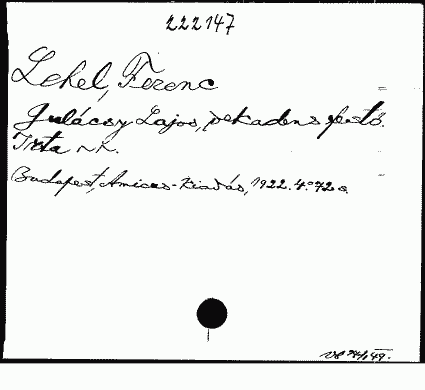 222147
Lehel, Ferenc
Gulácsy Lajos, dekadens festő.
Irta ~ ~.
Budapest, Amicus-Kiadás, 1922. 4° 72 o.